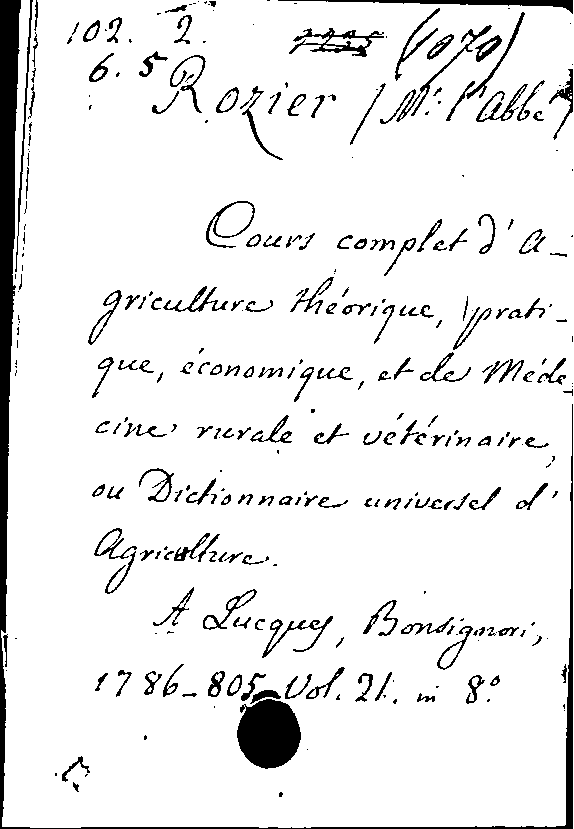 102. 2. (1070)
6. 5
Rozier (Mr. l'Abbé)
Cours complet d'A-
griculture théorique, prati-
que, économique, et de Méde-
cine rurale et vétérinaire,
ou Dictionnaire universel d'
Agriculture.
A Lucques, Bonsignori,
1786-805 Vol. 21. in 8°.